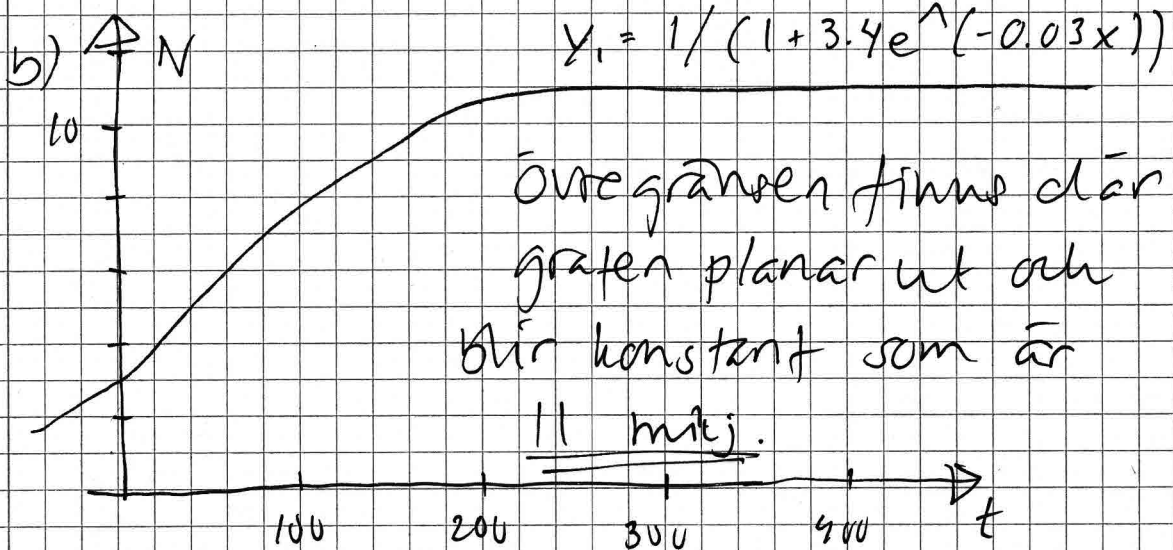 b) N y₁ = 1/(1+3.4e^(-0.03x))
10
övre gränsen finns där
grafen planar ut och
blir konstant som är
11 milj.
100 200 300 400 t